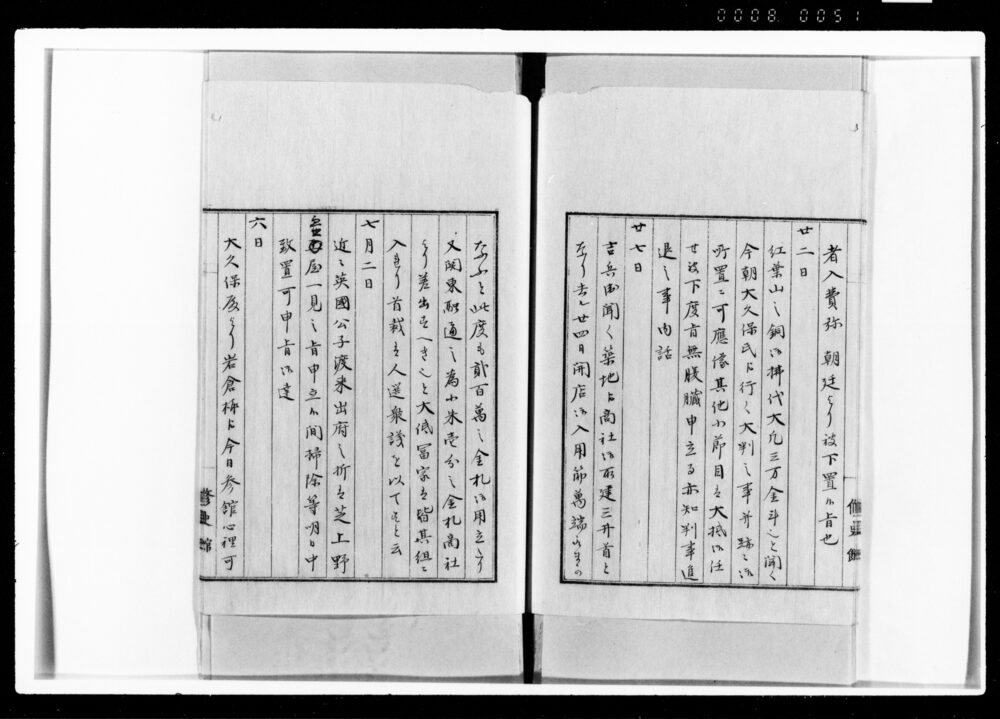 0008 0051
者入費弥　朝廷ゟ被下置候旨也
廿二日
紅葉山之銅御拂代大凡三万金斗之と聞く
今朝大久保氏ニ行く大判之事并跡之御
所置ニ可應儀其他小節目ハ大抵御任
せ被下度旨無腹臓申立る亦知判事進
退之事内話
廿七日
吉兵衛聞く築地ニ商社御取建三井首と
なり去ル廿四日開店御入用筋萬端
なふと此度も貳百萬之金札御用立り
又関東融通之為小朱壱分之金札商社
ゟ差出すへきと大低冨家ハ皆其組ニ
入れり首裁ハ人選衆議を以てすと云
七月二日
近々英國公子渡来出府之折ハ芝上野
屋一見之旨申立候間掃除等明日中
致置可申旨御達
六日
大久保殿ゟ岩倉様ニ今日参館心裡可
修史館
修史館